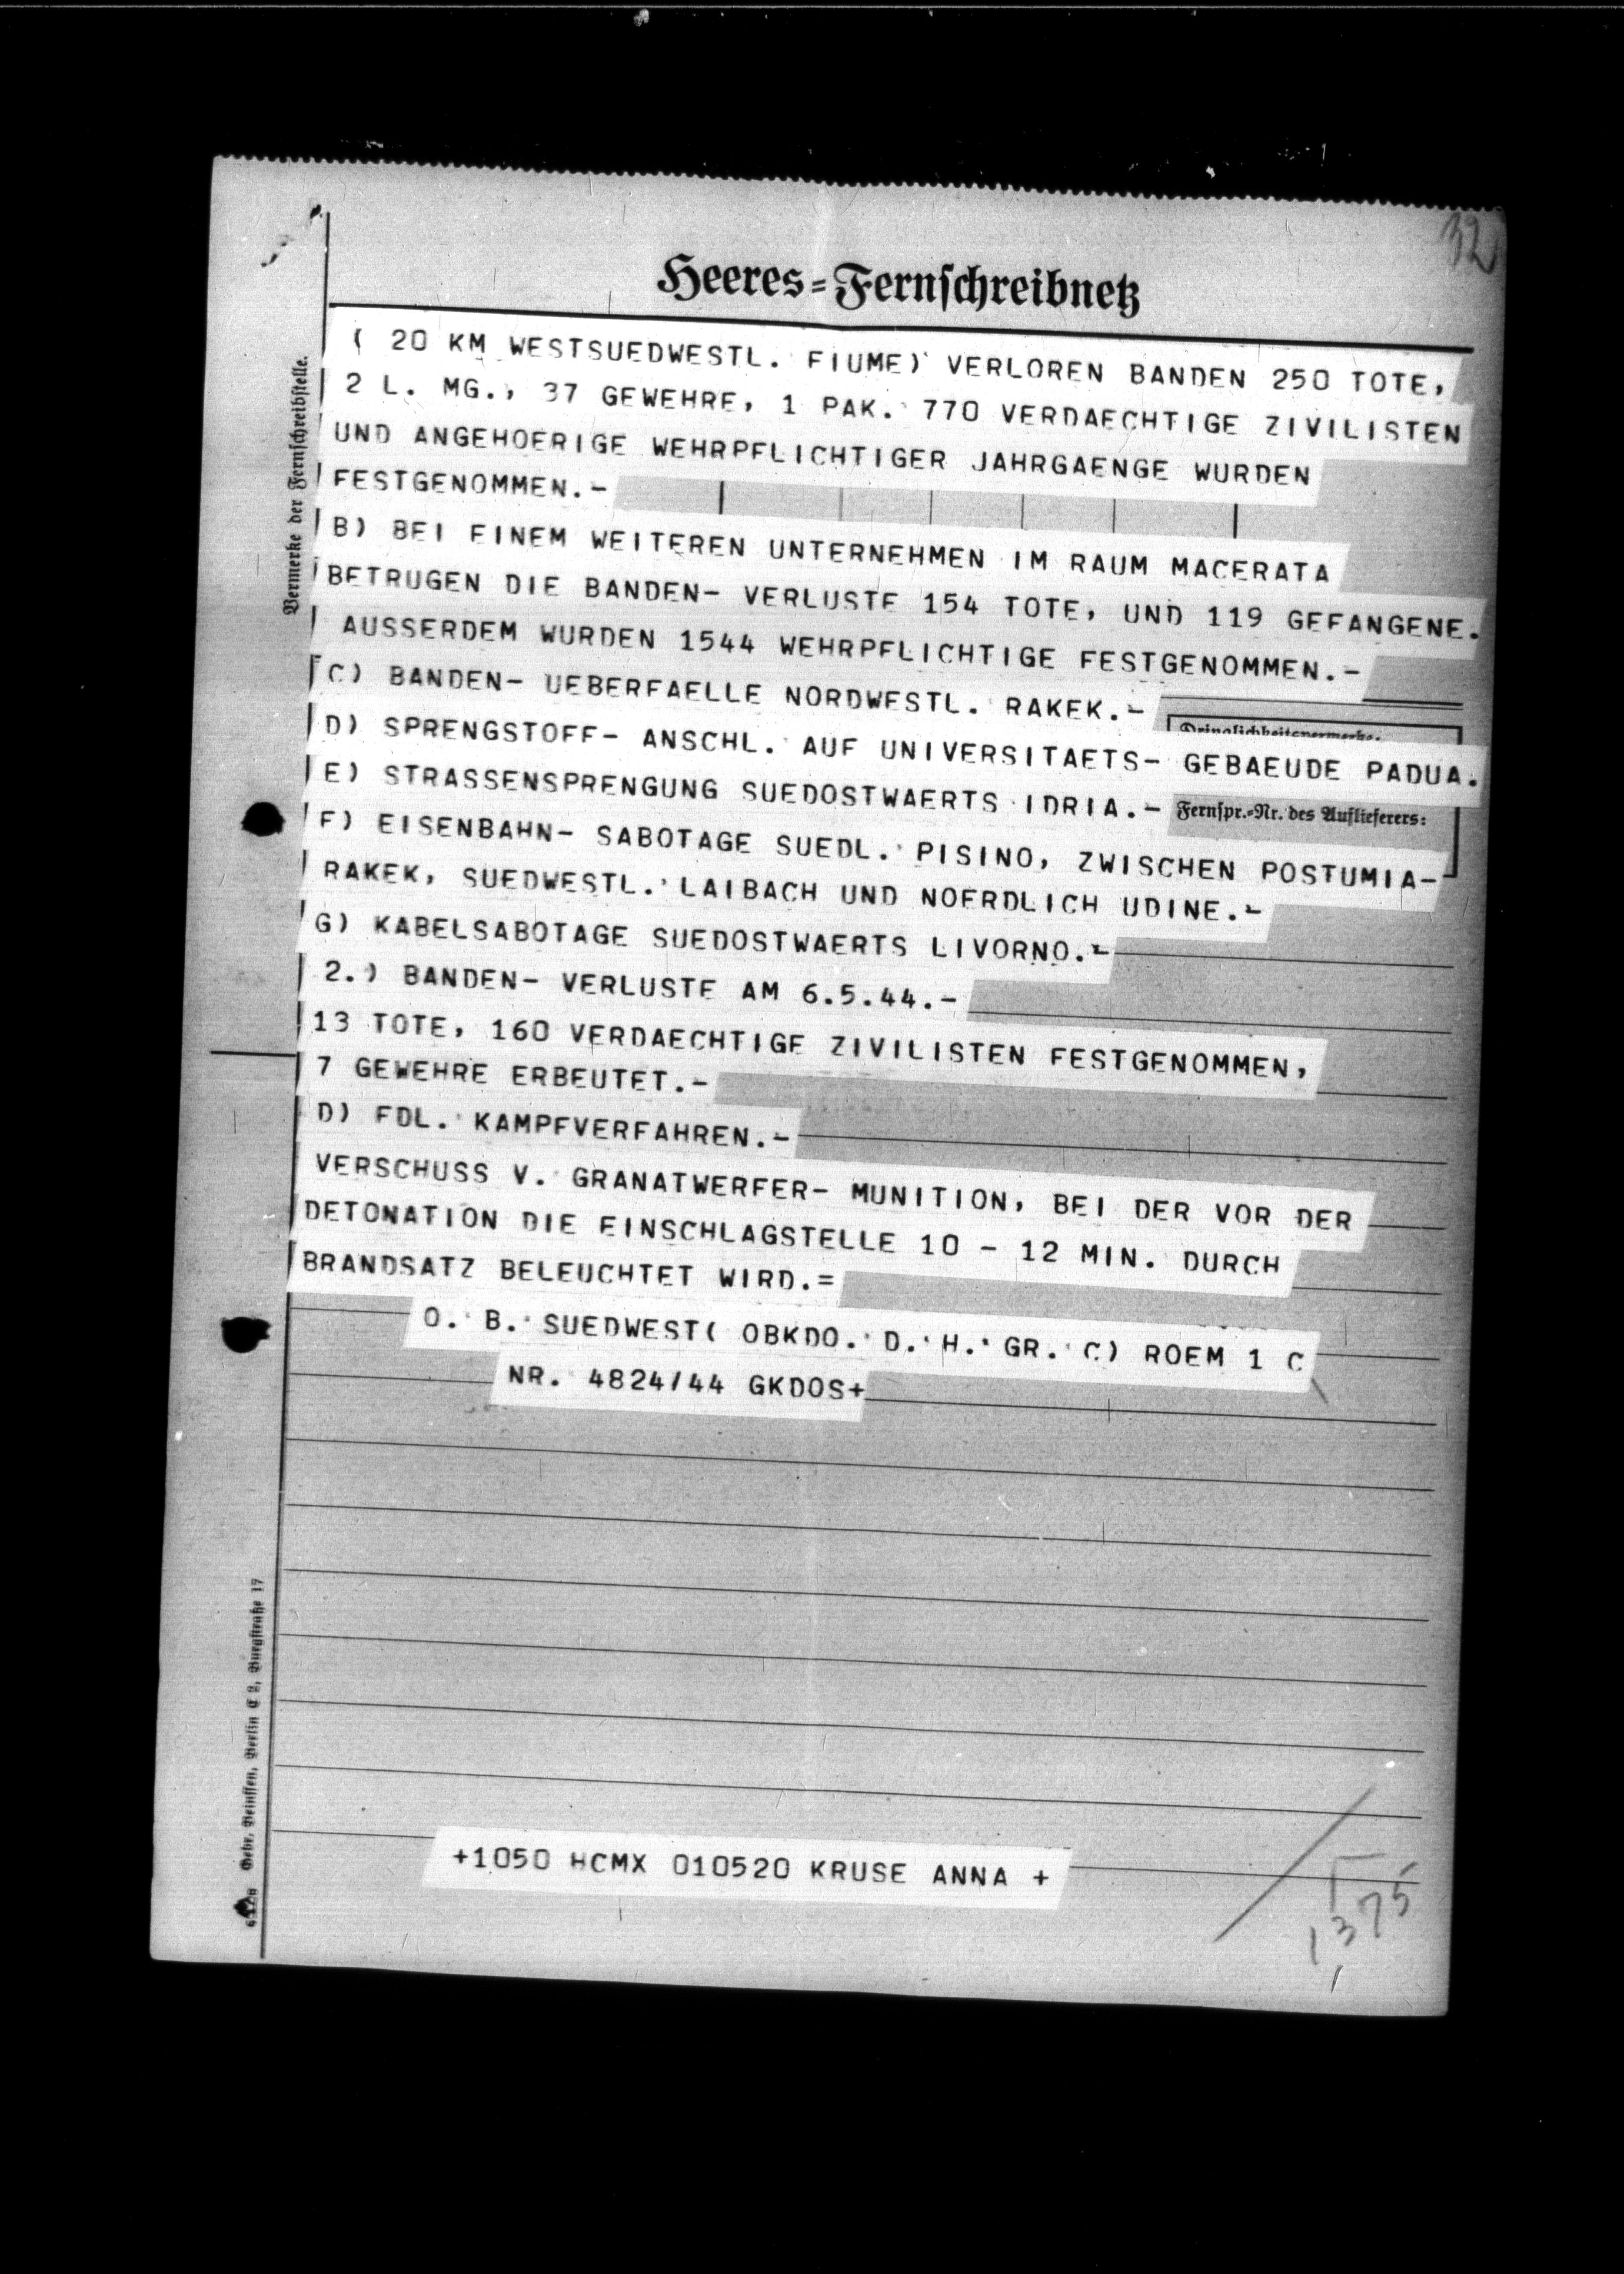 32
Heeres-Fernschreibnetz
Vermerke der Fernschreibstelle.
( 20 KM WESTSUEDWESTL. FIUME) VERLOREN BANDEN 250 TOTE,
2 L. MG., 37 GEWEHRE, 1 PAK. 770 VERDAECHTIGE ZIVILISTEN
UND ANGEHOERIGE WEHRPFLICHTIGER JAHRGAENGE WURDEN
FESTGENOMMEN.-
B) BEI EINEM WEITEREN UNTERNEHMEN IM RAUM MACERATA
BETRUGEN DIE BANDEN- VERLUSTE 154 TOTE, UND 119 GEFANGENE.
AUSSERDEM WURDEN 1544 WEHRPFLICHTIGE FESTGENOMMEN.-
C) BANDEN- UEBERFAELLE NORDWESTL. RAKEK.-
Dringlichkeitsvermerke:
D) SPRENGSTOFF- ANSCHL. AUF UNIVERSITAETS- GEBAEUDE PADUA.
E) STRASSENSPRENGUNG SUEDOSTWAERTS IDRIA.-
Fernspr.-Nr. des Auflieferers:
F) EISENBAHN- SABOTAGE SUEDL. PISINO, ZWISCHEN POSTUMIA-
RAKEK, SUEDWESTL. LAIBACH UND NOERDLICH UDINE.-
G) KABELSABOTAGE SUEDOSTWAERTS LIVORNO.-
2.) BANDEN- VERLUSTE AM 6.5.44.-
13 TOTE, 160 VERDAECHTIGE ZIVILISTEN FESTGENOMMEN,
7 GEWEHRE ERBEUTET.-
D) FDL. KAMPFVERFAHREN.-
VERSCHUSS V. GRANATWERFER- MUNITION, BEI DER VOR DER
DETONATION DIE EINSCHLAGSTELLE 10 - 12 MIN. DURCH
BRANDSATZ BELEUCHTET WIRD.=
O. B. SUEDWEST( OBKDO. D. H. GR. C) ROEM 1 C
NR. 4824/44 GKDOS+
Gebr. Beinssen, Berlin C 2, Burgstraße 17
+1050 HCMX 010520 KRUSE ANNA +
1375